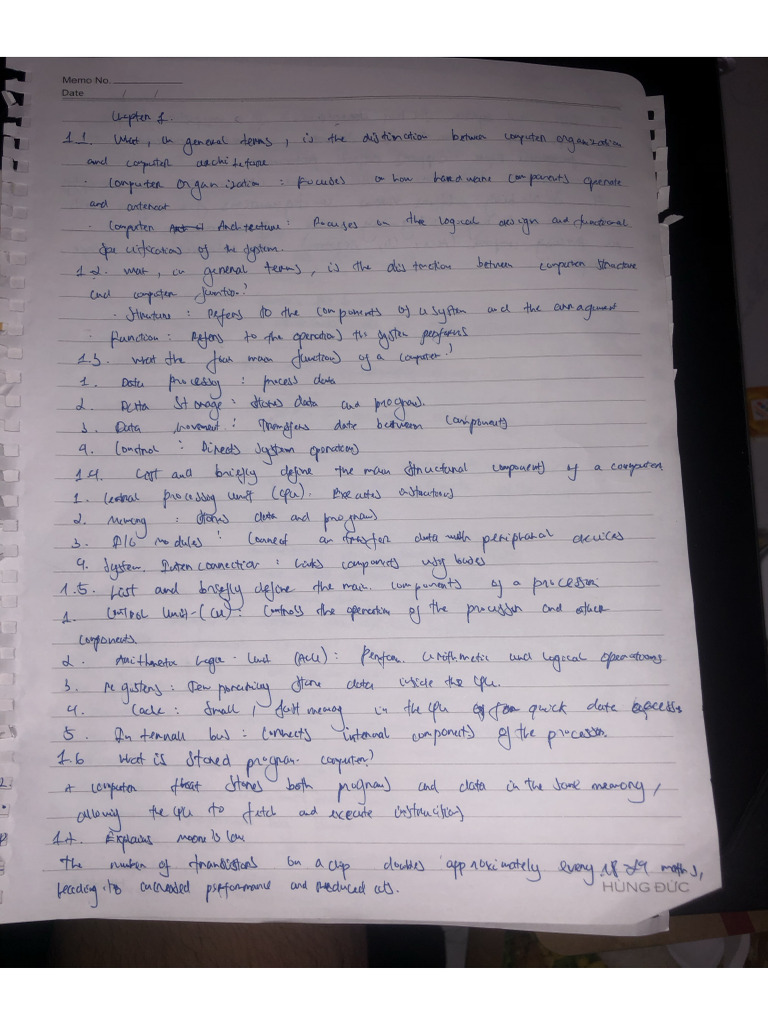 Memo No.
Date / /
Chapter 1.
1.1. What, in general terms, is the distinction between computer organization
and computer architecture
· Computer organization : Focuses on how hardware components operate
and interact
· Computer Architecture : Focuses on the logical design and functional
specifications of the system.
1.2. What, in general terms, is the distinction between computer structure
and computer function?
· Structure : Refers to the components of a system and the arrangement
· Function : Refers to the operations the system performs
1.3. What the four main functions of a computer?
1. Data processing : process data
2. Data Storage : stores data and programs.
3. Data movement : Transfers data between components
4. Control : Directs system operations
1.4. List and briefly define the main structural components of a computer
1. Central processing unit (CPU). Executes instructions
2. Memory : stores data and programs
3. I/O modules : Connect an transfer data with peripheral devices
4. System Interconnection : Links components using buses
1.5. List and briefly define the main components of a processor
1. Control Unit (CU) : Controls the operation of the processor and other
components.
2. Arithmetic Logic Unit (ALU) : Perform arithmetic and logical operations
3. Registers : Temporarily store data inside the CPU.
4. Cache : Small, fast memory in the CPU for quick data access
5. Internal bus : Connects internal components of the processor.
1.6 What is stored program computer?
A computer that stores both programs and data in the same memory,
allowing the CPU to fetch and execute instructions
1.7. Explains moore's law
The number of transistors on a chip doubles approximately every 18 24 months,
leading to increased performance and reduced costs.
HÙNG ĐỨC